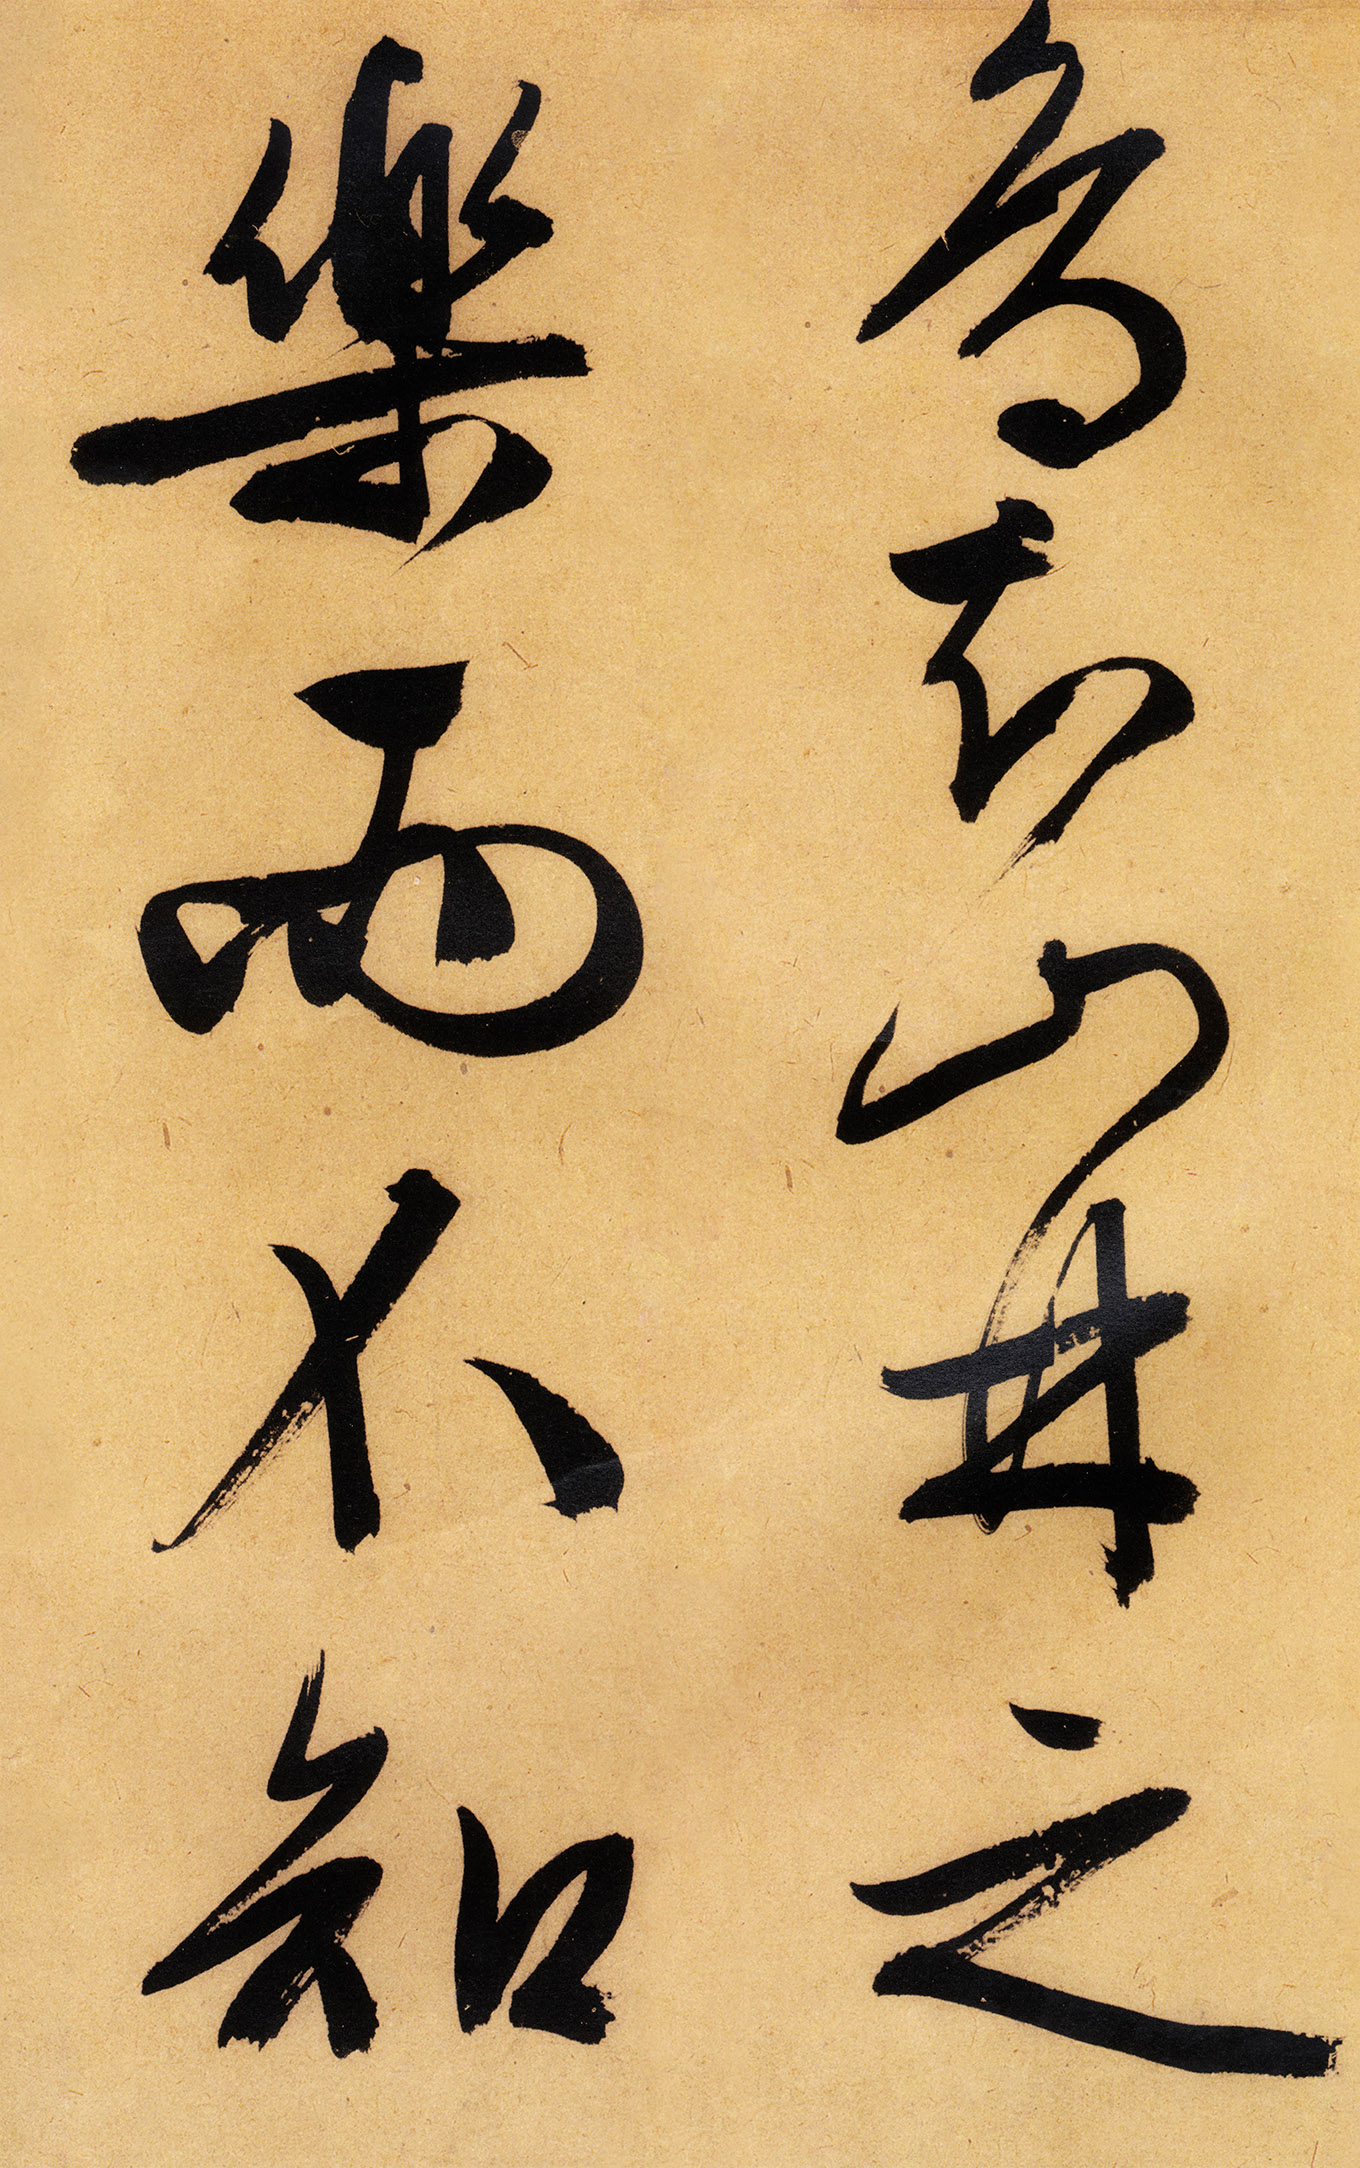 鳥知山林之
樂而不知